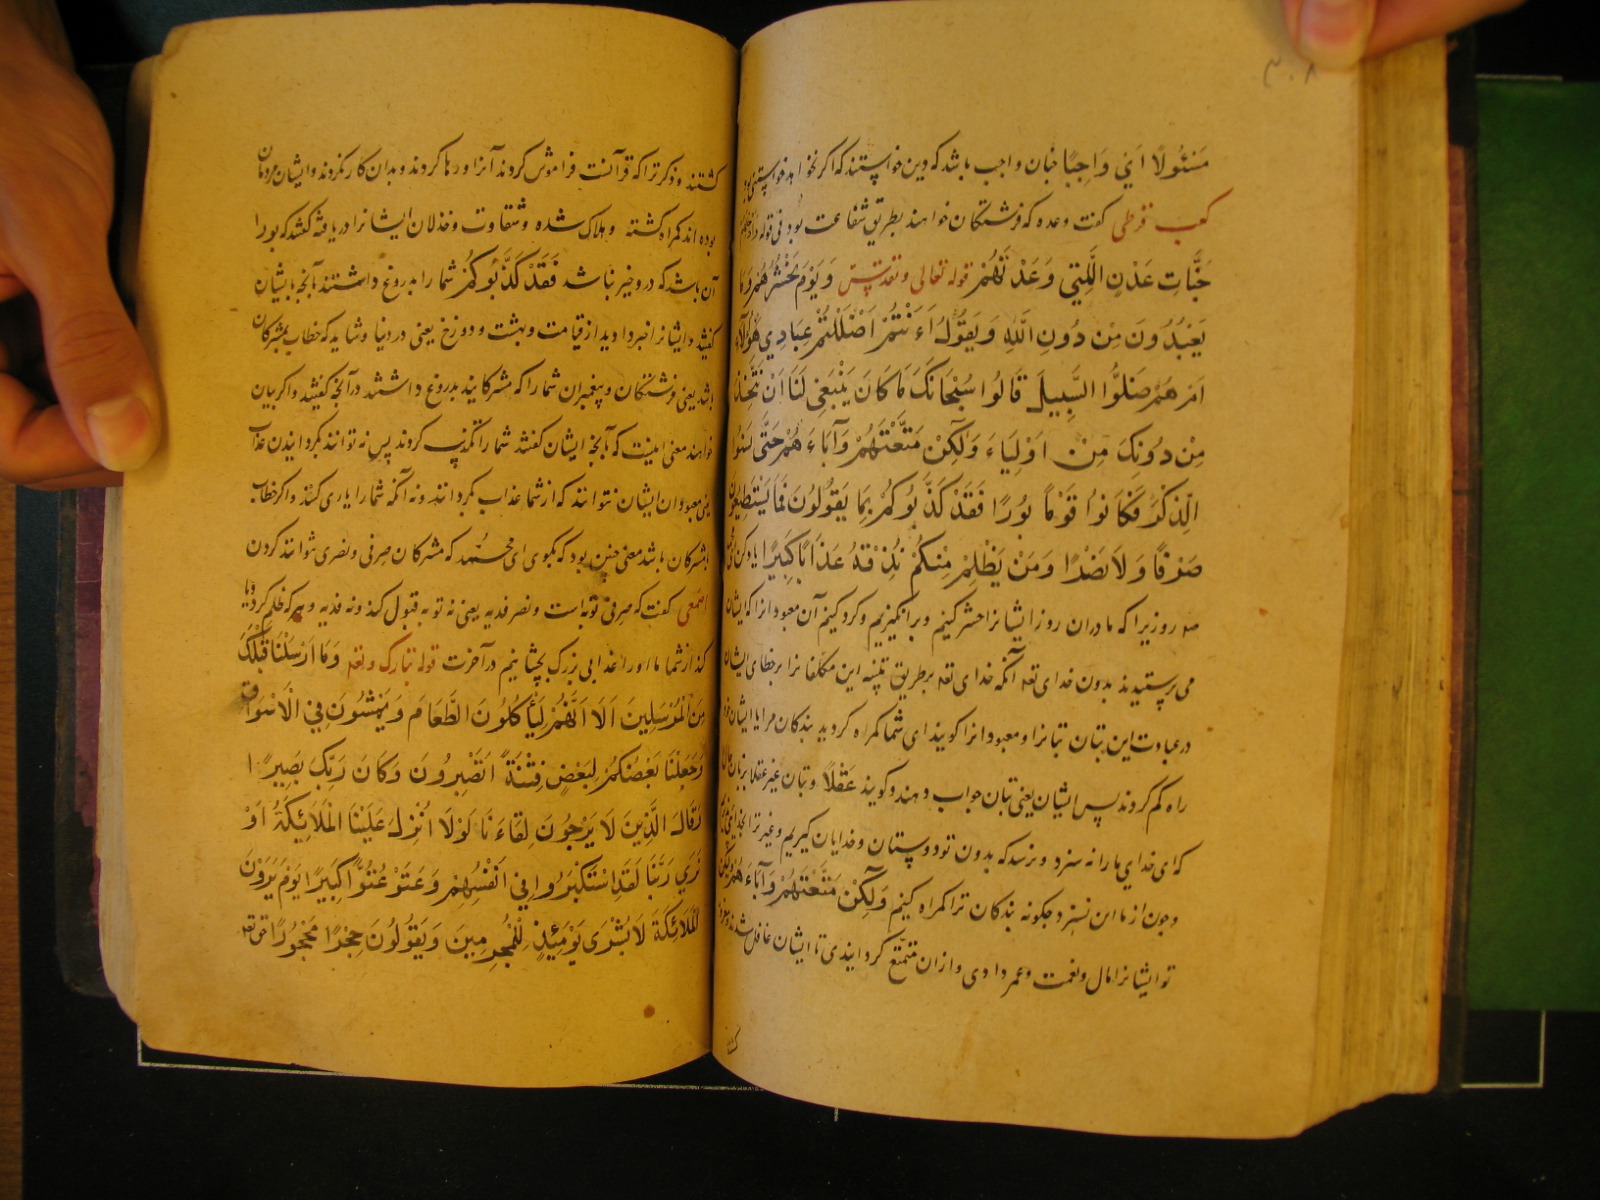 ۳۰۸
مَسْئُولًا ای وَاجِبًا چنان واجب باشد که دین خواستند که اکر نخواهد خواستنی بود
کعب قرطی کفت وعده که فرشتکان خواهند بطریق شفاعت بود فی قوله
جَنَّاتِ عَدْنٍ الَّتِي وَعَدْتَهُمْ قوله تعالی وتقدس وَيَوْمَ يَحْشُرُهُمْ وَمَا
يَعْبُدُونَ مِنْ دُونِ اللَّهِ وَيَقُولُ أَءَنْتُمْ اَضْلَلْتُمْ عِبَادِي هٰؤُلَاءِ
اَمْ هُمْ ضَلُّوا السَّبِيلَ قَالُوا سُبْحَانَكَ مَا كَانَ يَنْبَغِي لَنَا اَنْ نَتَّخِذَ
مِنْ دُونِكَ مِنْ اَوْلِيَاءَ وَلٰكِنْ مَتَّعْتَهُمْ وَآبَاءَهُمْ حَتَّى نَسُوا
الذِّكْرَ فَكَانُوا قَوْمًا بُورًا فَقَدْ كَذَّبُوكُمْ بِمَا يَقُولُونَ فَمَا يَسْتَطِيعُونَ
صَرْفًا وَلَا نَصْرًا وَمَنْ يَظْلِمْ مِنْكُمْ نُذِقْهُ عَذَابًا كَبِيرًا یاد کن
روزیرا که ما دران روز ایشانرا حشر کنیم وبرانکیزیم وکرد کنیم آن معبودانرا که ایشان
می پرستیدند بدون خدای تعه آنکه خدای تعه بر طریق تنبیه این مکلفانرا بر خطای ایشان
در عبادت این بتان بتانرا ومعبودانرا کویند ای شما کمراه کردید بندکان مرا یا ایشان خود
راه کم کردند پس ایشان یعنی بتان جواب دهند وکویند عَقْلًا وبتان غیر عقلا بزبان حال
که ای خدای ما را نه سزد ونرسد که بدون تو دوستان وخدایان کیریم وغیر ترا
وچون از ما این نسزد چکونه بندکان ترا کمراه کنیم وَلٰكِنْ مَتَّعْتَهُمْ وَآبَاءَهُمْ
تو ایشانرا مال ونعمت وعمر دادی واز ان متمتع کردانیدی تا ایشان غافل شدند
کشتند وذکر ترا که قرآنست فراموش کردند آنرا ورها کردند وبدان کار نکردند وایشان مردمان
بوده اند کمراه کشته وهلاک شده وشقاوت وخذلان ایشانرا دریافته کفتند که بورا
آن باشد که درو خیر نباشد فَقَدْ كَذَّبُوكُمْ شما را بدروغ داشتند بآنچه با ایشان
کفتید وایشانرا خبر دادید از قیامت وبهشت ودوزخ یعنی در دنیا وشاید که خطاب بمشرکان
باشد یعنی فرشتکان وپیغمبران شما را که مشرکانید بدروغ داشتند در آنچه کفتید واکر بیان
خواهند معنی اینست که بآنچه ایشان کفتند شما را تکذیب کردند پس نه توانند بکردانیدن عذاب
یعنی معبودان ایشان نتوانند که از شما عذاب بکردانند ونه آنکه شما را یاری کنند واکر خطاب
با مشرکان باشد معنی چنین بود که بکوی ای محمد که مشرکان صرفی ونصری نتوانند کردن
اصمعی کفت که صرفی توبه است ونصر فدیه یعنی نه توبه قبول کند ونه فدیه وهر که ظلم کرد
کند از شما ما او را عذابی بزرک بچشانیم در آخرت قوله تبارک وتعه وَمَا اَرْسَلْنَا قَبْلَكَ
مِنَ الْمُرْسَلِينَ اَلَا اَنَّهُمْ لَيَأْكُلُونَ الطَّعَامَ وَيَمْشُونَ فِي الْاَسْوَاقِ
وَجَعَلْنَا بَعْضَكُمْ لِبَعْضٍ فِتْنَةً اَتَصْبِرُونَ وَكَانَ رَبُّكَ بَصِيرًا
وَقَالَ الَّذِينَ لَا يَرْجُونَ لِقَاءَنَا لَوْلَا اُنْزِلَ عَلَيْنَا الْمَلَائِكَةُ اَوْ
نَرَى رَبَّنَا لَقَدِ اسْتَكْبَرُوا فِي اَنْفُسِهِمْ وَعَتَوْ عُتُوًّا كَبِيرًا يَوْمَ يَرَوْنَ
الْمَلَائِكَةَ لَا بُشْرَى يَوْمَئِذٍ لِلْمُجْرِمِينَ وَيَقُولُونَ حِجْرًا مَحْجُورًا حق تعه